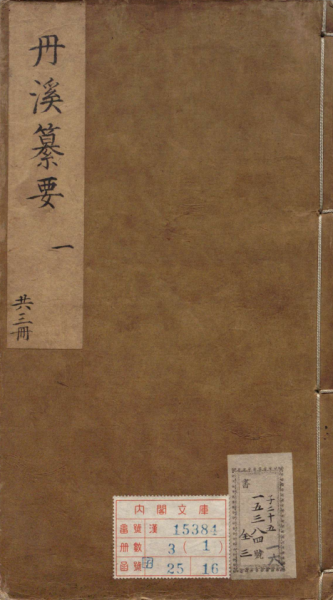 丹溪纂要
一
共三冊
書
子二十五
一五三八四號
全三
一六
內閣文庫
番號 漢 15384
冊數 3 (1)
函號 25 16